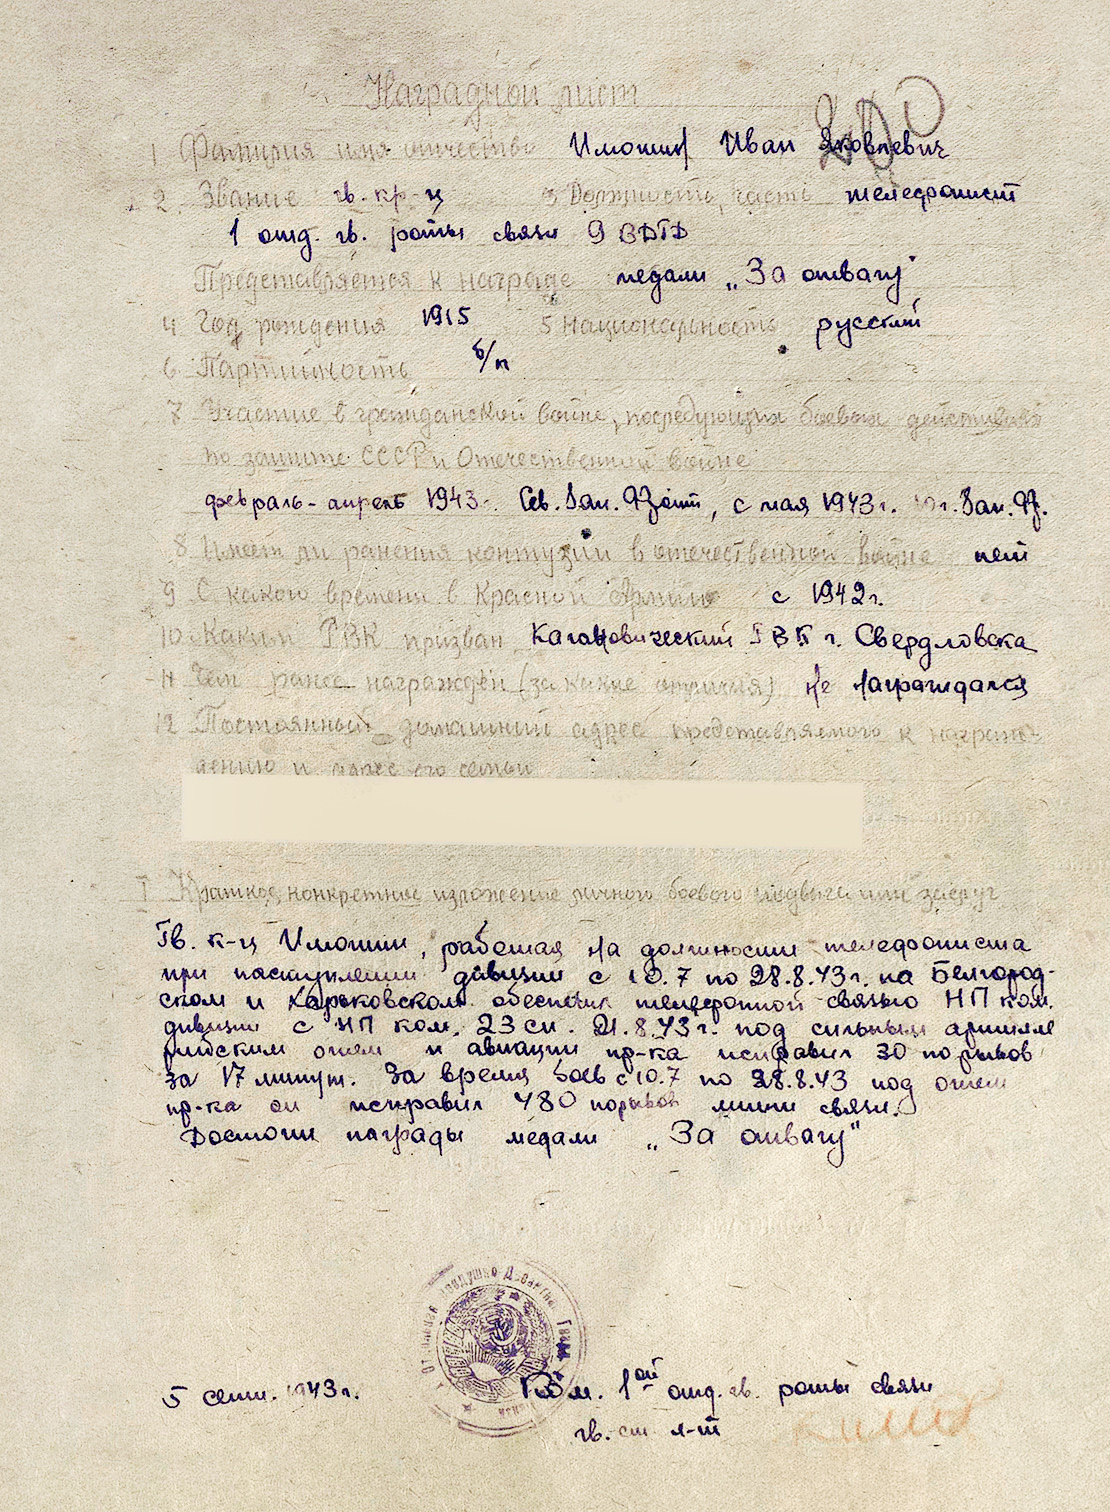 Наградной лист
1 Фамилия имя отчество Имошин Иван Яковлевич
2. Звание гв. кр-ц 3 Должность, часть телефонист
1 отд. гв. роты связи 9 ВДГД
Представляется к награде медали „За отвагу"
4 Год рождения 1915 5 Национальность русский
6 Партийность б/п
7 Участие в гражданской войне, последующих боевых действиях
по защите СССР и Отечественной войне
февраль-апрель 1943г. Сев. Зап. Фронт, с мая 1943г. Юг. Зап. Ф.
8 Имеет ли ранения контузии в отечественной войне нет
9 С какого времени в Красной Армии с 1942г.
10 Каким РВК призван Кагановический РВК г. Свердловска
11 Чем ранее награжден (за какие отличия) не награждался
12 Постоянный домашний адрес представляемого к награж-
дению и адрес его семьи
I Краткое, конкретное изложение личного боевого подвига или заслуг
Гв. к-ц Имошин, работая на должности телефониста
при наступлении дивизии с 10.7 по 28.8.43г. на Белгород-
ском и Харьковском обеспечил телефонной связью НП ком.
дивизии с НП ком. 23 сп. 21.8.43г. под сильным артилле
рийским огнем и авиации пр-ка исправил 30 порывов
за 17 минут. За время боев с 10.7 по 28.8.43 под огнем
пр-ка он исправил 480 порывов линии связи.
Достоин награды медали „За отвагу"
5 сент. 1943г. Ком. 1ой отд. гв. роты связи
гв. ст л-т